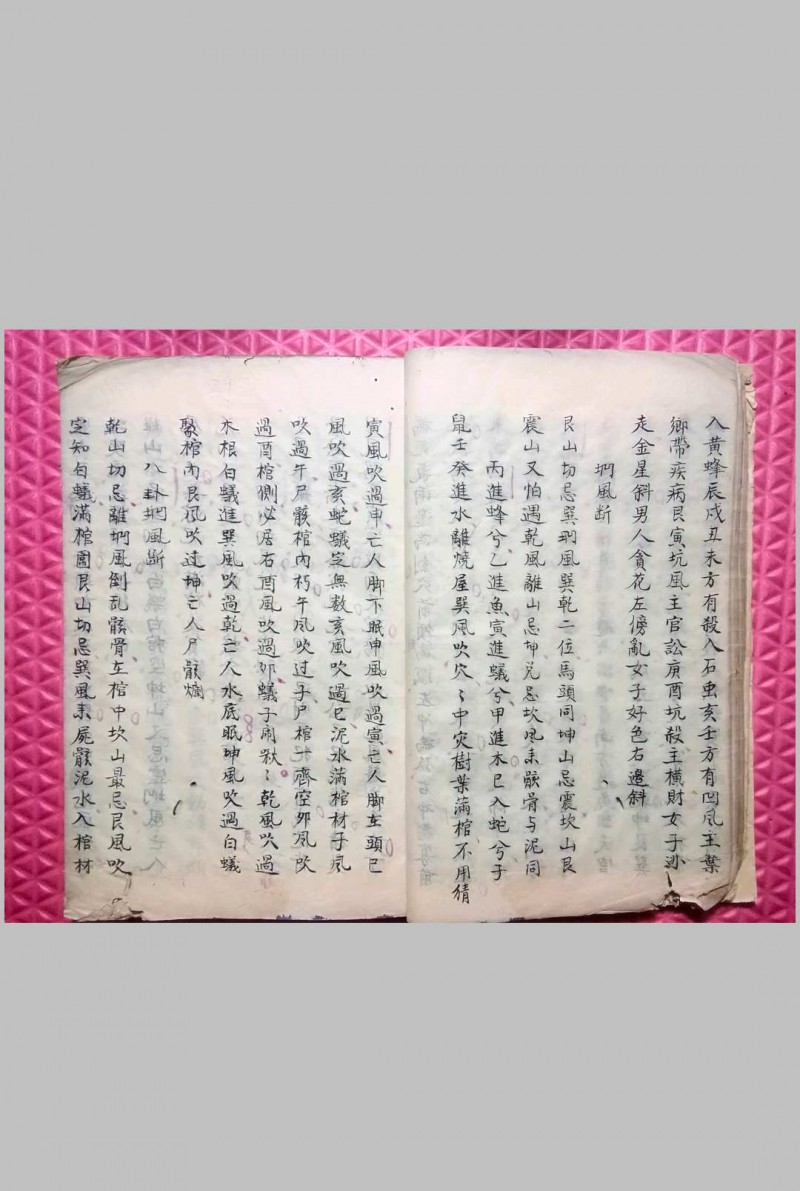 入黄蜂辰戌丑未方有殺入石虫亥壬方有凹風主葉
鄉帶疾病艮寅坑風主官訟庚酉坑殺主橫財女子沙
走金星斜男人貪花左傍亂女子好色右邉斜
坳風断
艮山切忌巽坳風巽乾二位馬頭同坤山忌震坎山艮
震山又怕遇乾風離山忌坤兑忌坎風耒骸骨与泥同
丙進蜂兮乙進魚寅進蟻兮甲進木巳入蛇兮子
鼠壬癸進水離燒屋巽風吹穴〻中灾樹葉滿棺不用猜
寅風吹過申亡人脚下眠申風吹過寅亡人脚在頭巳
風吹過亥蛇蟻定無数亥風吹過巳泥水滿棺材子風
吹过午尸骸棺內朽午風吹过子尸棺一齊空卯風吹
過酉棺側必居右酉風吹過卯蟻子鬧〻乾風吹過
木根白蟻進巽風吹過乾亡人水底眠坤風吹過白蟻
聚棺內艮風吹过坤亡人尸骸爛
八卦坳風断
乾山切忌離坳風倒乱骸骨在棺中坎山最忌艮風吹
定知白蟻滿棺囲艮山切忌巽風耒屍骸泥水入棺材